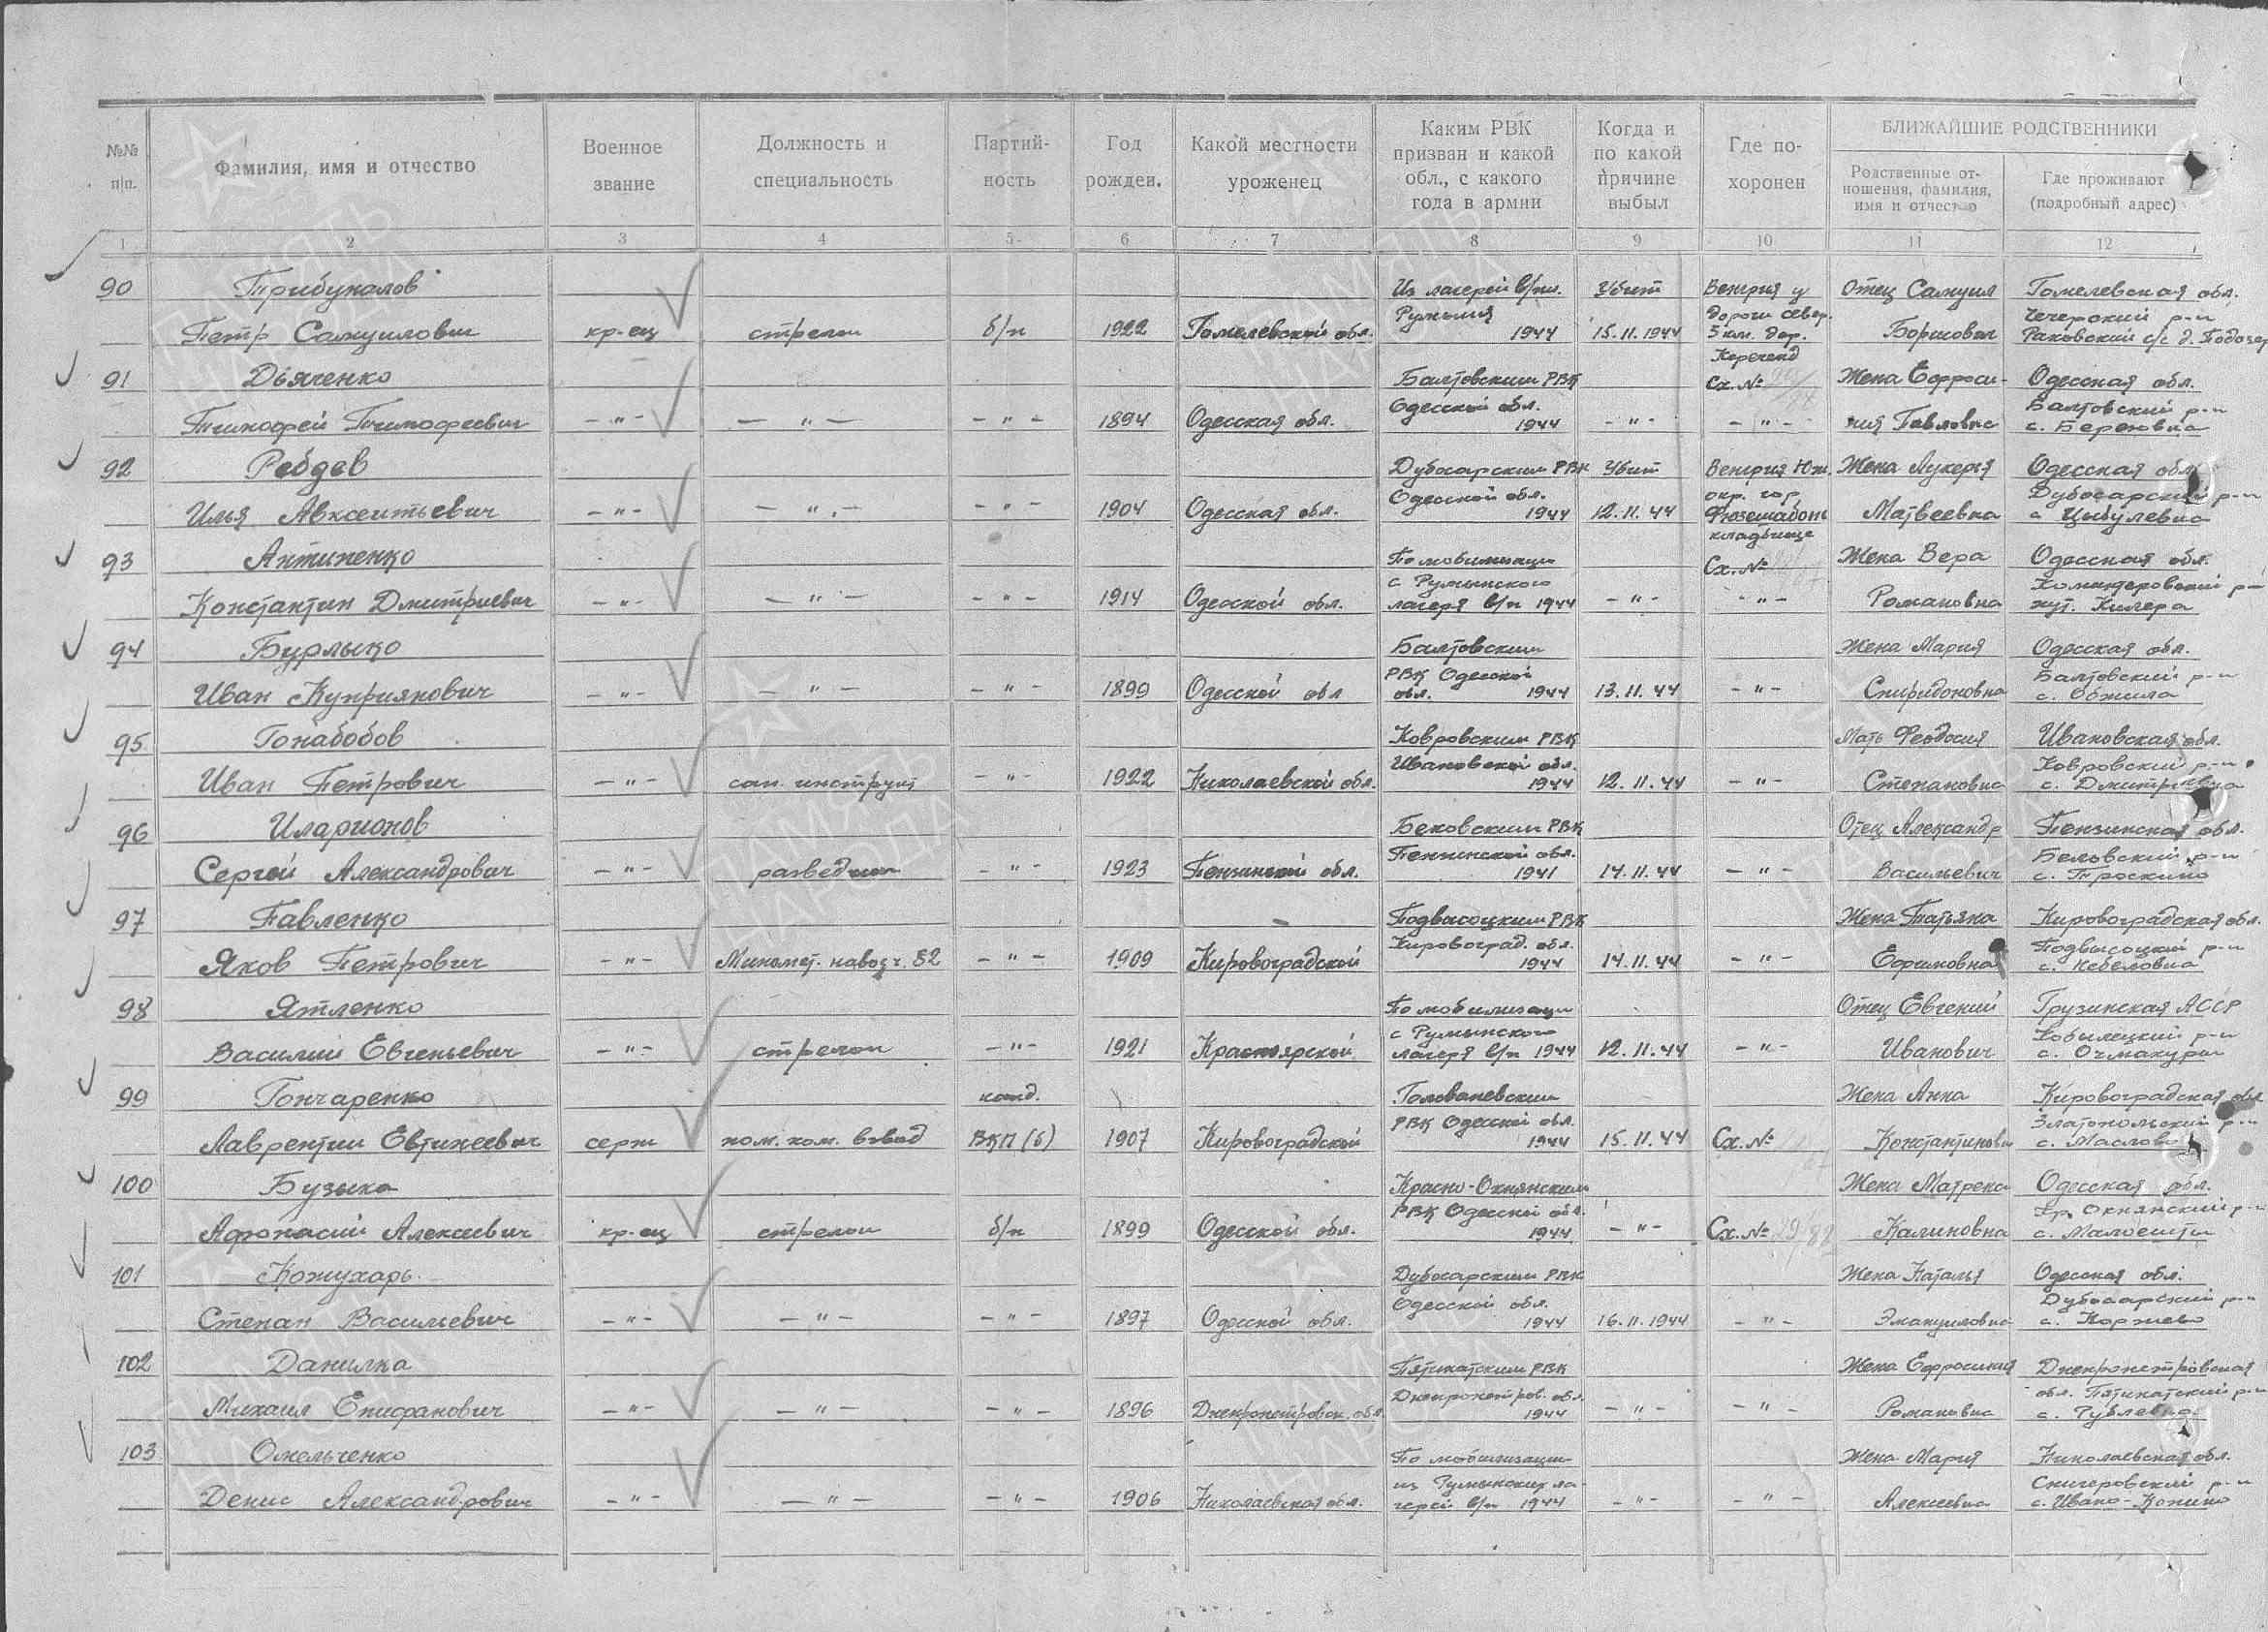 №№ п/п.
Фамилия, имя и отчество
Военное звание
Должность и специальность
Партий-ность
Год рожден.
Какой местности уроженец
Каким РВК призван и какой обл., с какого года в армии
Когда и по какой причине выбыл
Где по-хоронен
БЛИЖАЙШИЕ РОДСТВЕННИКИ
Родственные от-ношения, фамилия, имя и отчество
Где проживают (подробный адрес)
1 2 3 4 5 6 7 8 9 10 11 12
90 Трибуналов Из лагерей в/пл. Убит Венгрия у Отец Самуил Гомелевская обл.
Румыния дороги север. Чечерский р-н
Петр Самуилович кр-ец стрелок б/п 1922 Гомелевской обл. 1944 15.11.1944 5 км. дер. Борисович Раковский с/с д.
91 Дьяченко Балтовским РВК Сх. № Жена Ефроси- Одесская обл.
Одесской обл. Балтовский р-н
Тимофей Тимофеевич -"- -"- -"- 1894 Одесская обл. 1944 -"- -"- ния Павловна с. Березовка
92 Ребдев Дубосарским РВК Убит Венгрия Юж. Жена Лукерья Одесская обл.
Одесской обл. окр. гор Дубосарский р-н
Илья Авксентьевич -"- -"- -"- 1904 Одесская обл. 1944 12.11.44 Матвеевна с Цыбулевка
кладбище
93 Антипенко По мобилизации Сх. № Жена Вера Одесская обл.
с Румынского р-н
Константин Дмитриевич -"- -"- -"- 1914 Одесской обл. лагеря в/п 1944 -"- -"- Романовна хут. Килера
94 Бурлыко Балтовским Жена Мария Одесская обл.
РВК Одесской Балтовский р-н
Иван Куприянович -"- -"- -"- 1899 Одесской обл обл. 1944 13.11.44 -"- Спиридоновна с. Обжила
95 Гонабобов Ковровским РВК Мать Феодосия Ивановская обл.
Ивановской обл. Ковровский р-н
Иван Петрович -"- сан. инструкт -"- 1922 Николаевской обл. 1944 12.11.44 -"- Степановна с.
96 Иларионов Бековским РВК Отец Александр Пензинская обл.
Пензинской обл. р-н
Сергей Александрович -"- разведчик -"- 1923 Пензинской обл. 1941 14.11.44 -"- Васильевич с. Проскино
97 Павленко Подвысоцким РВК Жена Татьяна Кировоградская обл.
Кировоград. обл. Подвысоцкий р-н
Яков Петрович -"- Миномет. наводч. 82 -"- 1909 Кировоградской 1944 14.11.44 -"- Ефимовна с. Небеловка
98 Ятленко По мобилизаци Отец Евгений Грузинская АССР
с Румынского р-н
Василий Евгеньевич -"- стрелок -"- 1921 Красноярской лагеря в/п 1944 12.11.44 -"- Иванович с. Очмакури
99 Гончаренко канд. Голованевским Жена Анна Кировоградская обл.
РВК Одесской обл. Златопольский р-н
Лаврентии Евтихеевич серж пом. ком. взвод ВКП(б) 1907 Кировоградской 1944 15.11.44 Сх. № Константиновн с.
100 Бузыка Красно-Окнянским Жена Матрена Одесская обл.
РВК Одесской обл. Кр. Окнянский р-н
Афонасий Алексеевич кр-ец стрелок б/п 1899 Одесской обл. 1944 -"- Сх. № Калиновна с. Малоешти
101 Кожухарь Дубосарским РВК Жена Наталья Одесская обл.
Одесской обл. Дубосарский р-н
Степан Васильевич -"- -"- -"- 1897 Одесской обл. 1944 16.11.1944 -"- Эмануиловна с. Коржево
102 Данилка Пятихатским РВК Жена Ефросиния Днепропетровская
Днепропетров. обл. обл. Пятихатский р-н
Михаил Епифанович -"- -"- -"- 1896 Днепропетровск. обл. 1944 -"- -"- Романовна с.
103 Омельченко По мобилизации Жена Мария Николаевская обл.
из Румынских ла- Снигеровский р-н
Денис Александрович -"- -"- -"- 1906 Николаевская обл. герей в/п 1944 -"- -"- Алексеевна с.
ПАМЯТЬ НАРОДА